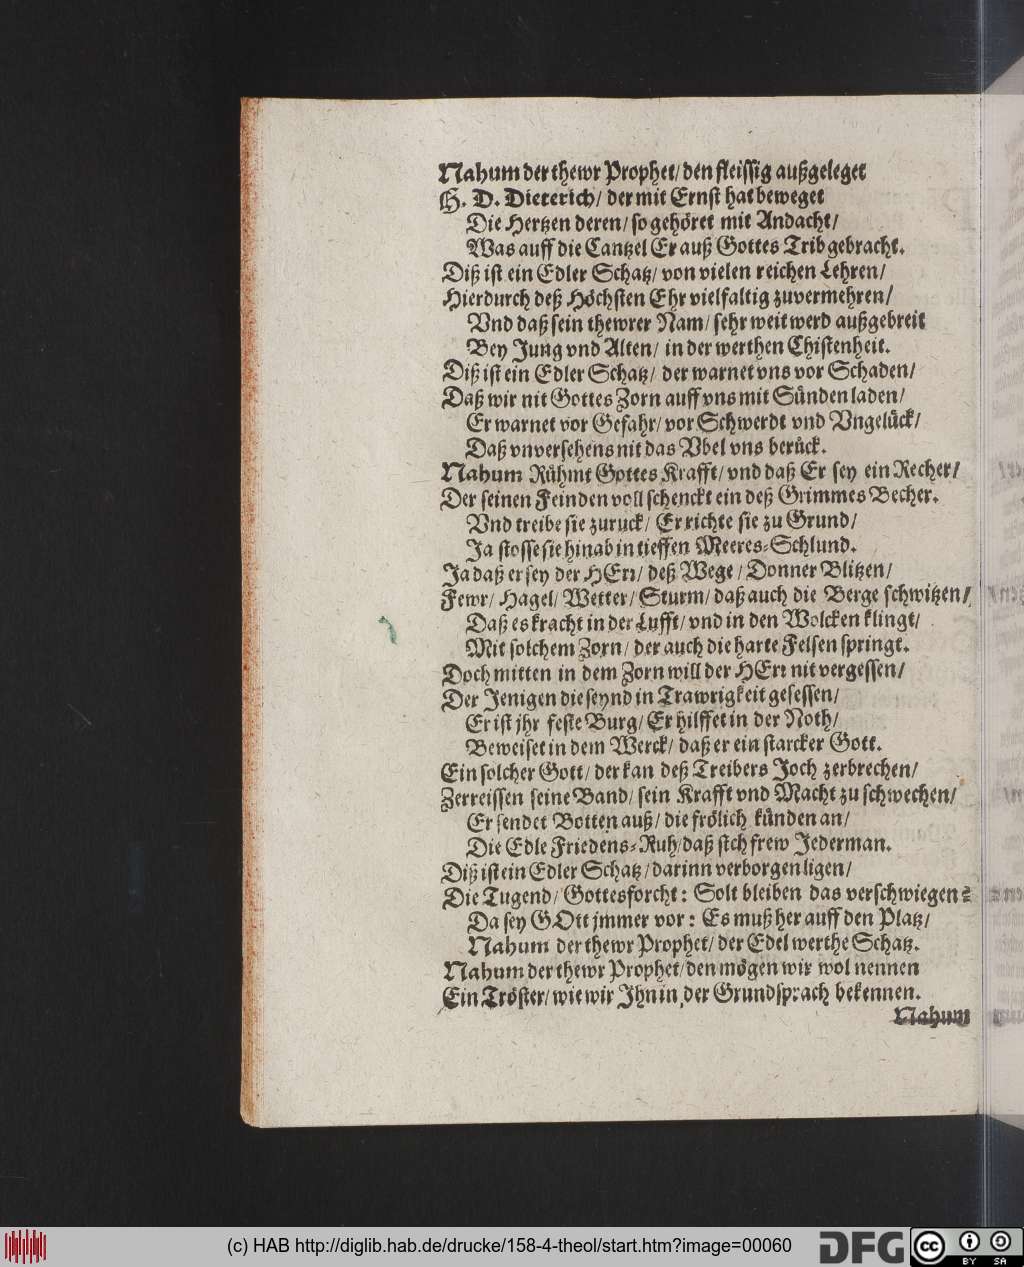 Nahum der thewr Prophet/ den fleissig außgeleget
H. D. Dieterich/ der mit Ernst hat beweget
Die Hertzen deren/ so gehöret mit Andacht/
Was auff die Cantzel Er auß Gottes Trib gebracht.
Diß ist ein Edler Schatz/ von vielen reichen Lehren/
Hierdurch deß Höchsten Ehr vielfaltig zuvermehren/
Vnd daß sein thewrer Nam/ sehr weit werd außgebreit
Bey Jung vnd Alten/ in der werthen Chistenheit.
Diß ist ein Edler Schatz/ der warnet vns vor Schaden/
Daß wir nit Gottes Zorn auff vns mit Sünden laden/
Er warnet vor Gefahr/ vor Schwerdt vnd Vngelück/
Daß vnversehens nit das Vbel vns berück.
Nahum Rühmt Gottes Krafft/ vnd daß Er sey ein Recher/
Der seinen Feinden voll schenckt ein deß Grimmes Becher.
Vnd treibe sie zuruck/ Er richte sie zu Grund/
Ja stosse sie hinab in tieffen Meeres-Schlund.
Ja daß er sey der HErr/ deß Wege/ Donner Blitzen/
Fewr/ Hagel/ Wetter/ Sturm/ daß auch die Berge schwitzen/
Daß es kracht in der Lufft/ vnd in den Wolcken klingt/
Mit solchem Zorn/ der auch die harte Felsen springt.
Doch mitten in dem Zorn will der HErr nit vergessen/
Der Jenigen die seynd in Trawrigkeit gesessen/
Er ist jhr feste Burg/ Er hilffet in der Noth/
Beweiset in dem Werck/ daß er ein starcker Gott.
Ein solcher Gott/ der kan deß Treibers Joch zerbrechen/
Zerreissen seine Band/ sein Krafft vnd Macht zu schwechen/
Er sendet Botten auß/ die frölich künden an/
Die Edle Friedens-Ruh/ daß sich frew Jederman.
Diß ist ein Edler Schatz/ darinn verborgen ligen/
Die Tugend/ Gottesforcht: Solt bleiben das verschwiegen?
Da sey GOtt jmmer vor: Es muß her auff den Platz/
Nahum der thewr Prophet/ der Edel werthe Schatz.
Nahum der thewr Prophet/ den mögen wir wol nennen
Ein Tröster/ wie wir Jhn in der Grundsprach bekennen.
Nahum
(c) HAB http://diglib.hab.de/drucke/158-4-theol/start.htm?image=00060
DFG
cc BY SA